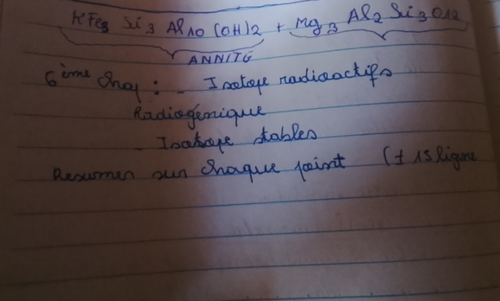 KFe3 Si3 Al10 (OH)2 + Mg3 Al2 Si3 O12
ANNITE
6ème Chap : - Isotope radioactifs
Radiogénique
- Isotope stables
Resumer sur chaque point (± 15 ligne